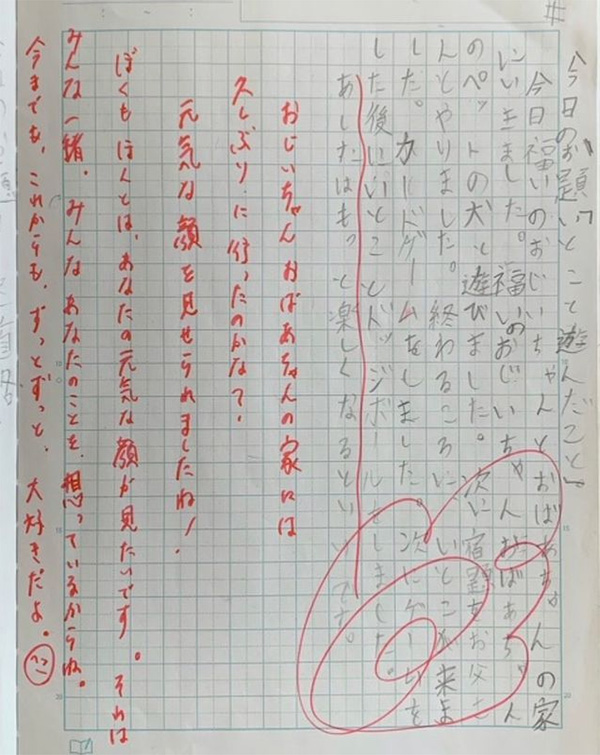 今日のお題「いとこと遊んだこと」
今日福いのおじいちゃんとおばあちゃんの家
にいきました。福いのおじいちゃんおばあちゃん
のペットの犬と遊びました。次に宿題をお父さ
んとやりました。終わるころにいとこが来ま
した。カードゲームをしました。次にゲームを
した後にいとことドッジボールをしました。
あしたはもっと楽しくなるといいです。
おじいちゃんおばあちゃんの家には
久しぶりに行ったのかな?
元気な顔を見せられましたね!
ぼくもほんとは、あなたの元気な顔が見たいです。それは
みんな一緒。みんなあなたのことを想っているからね。
今までも、これからも、ずっとずっと、大好きだよ。